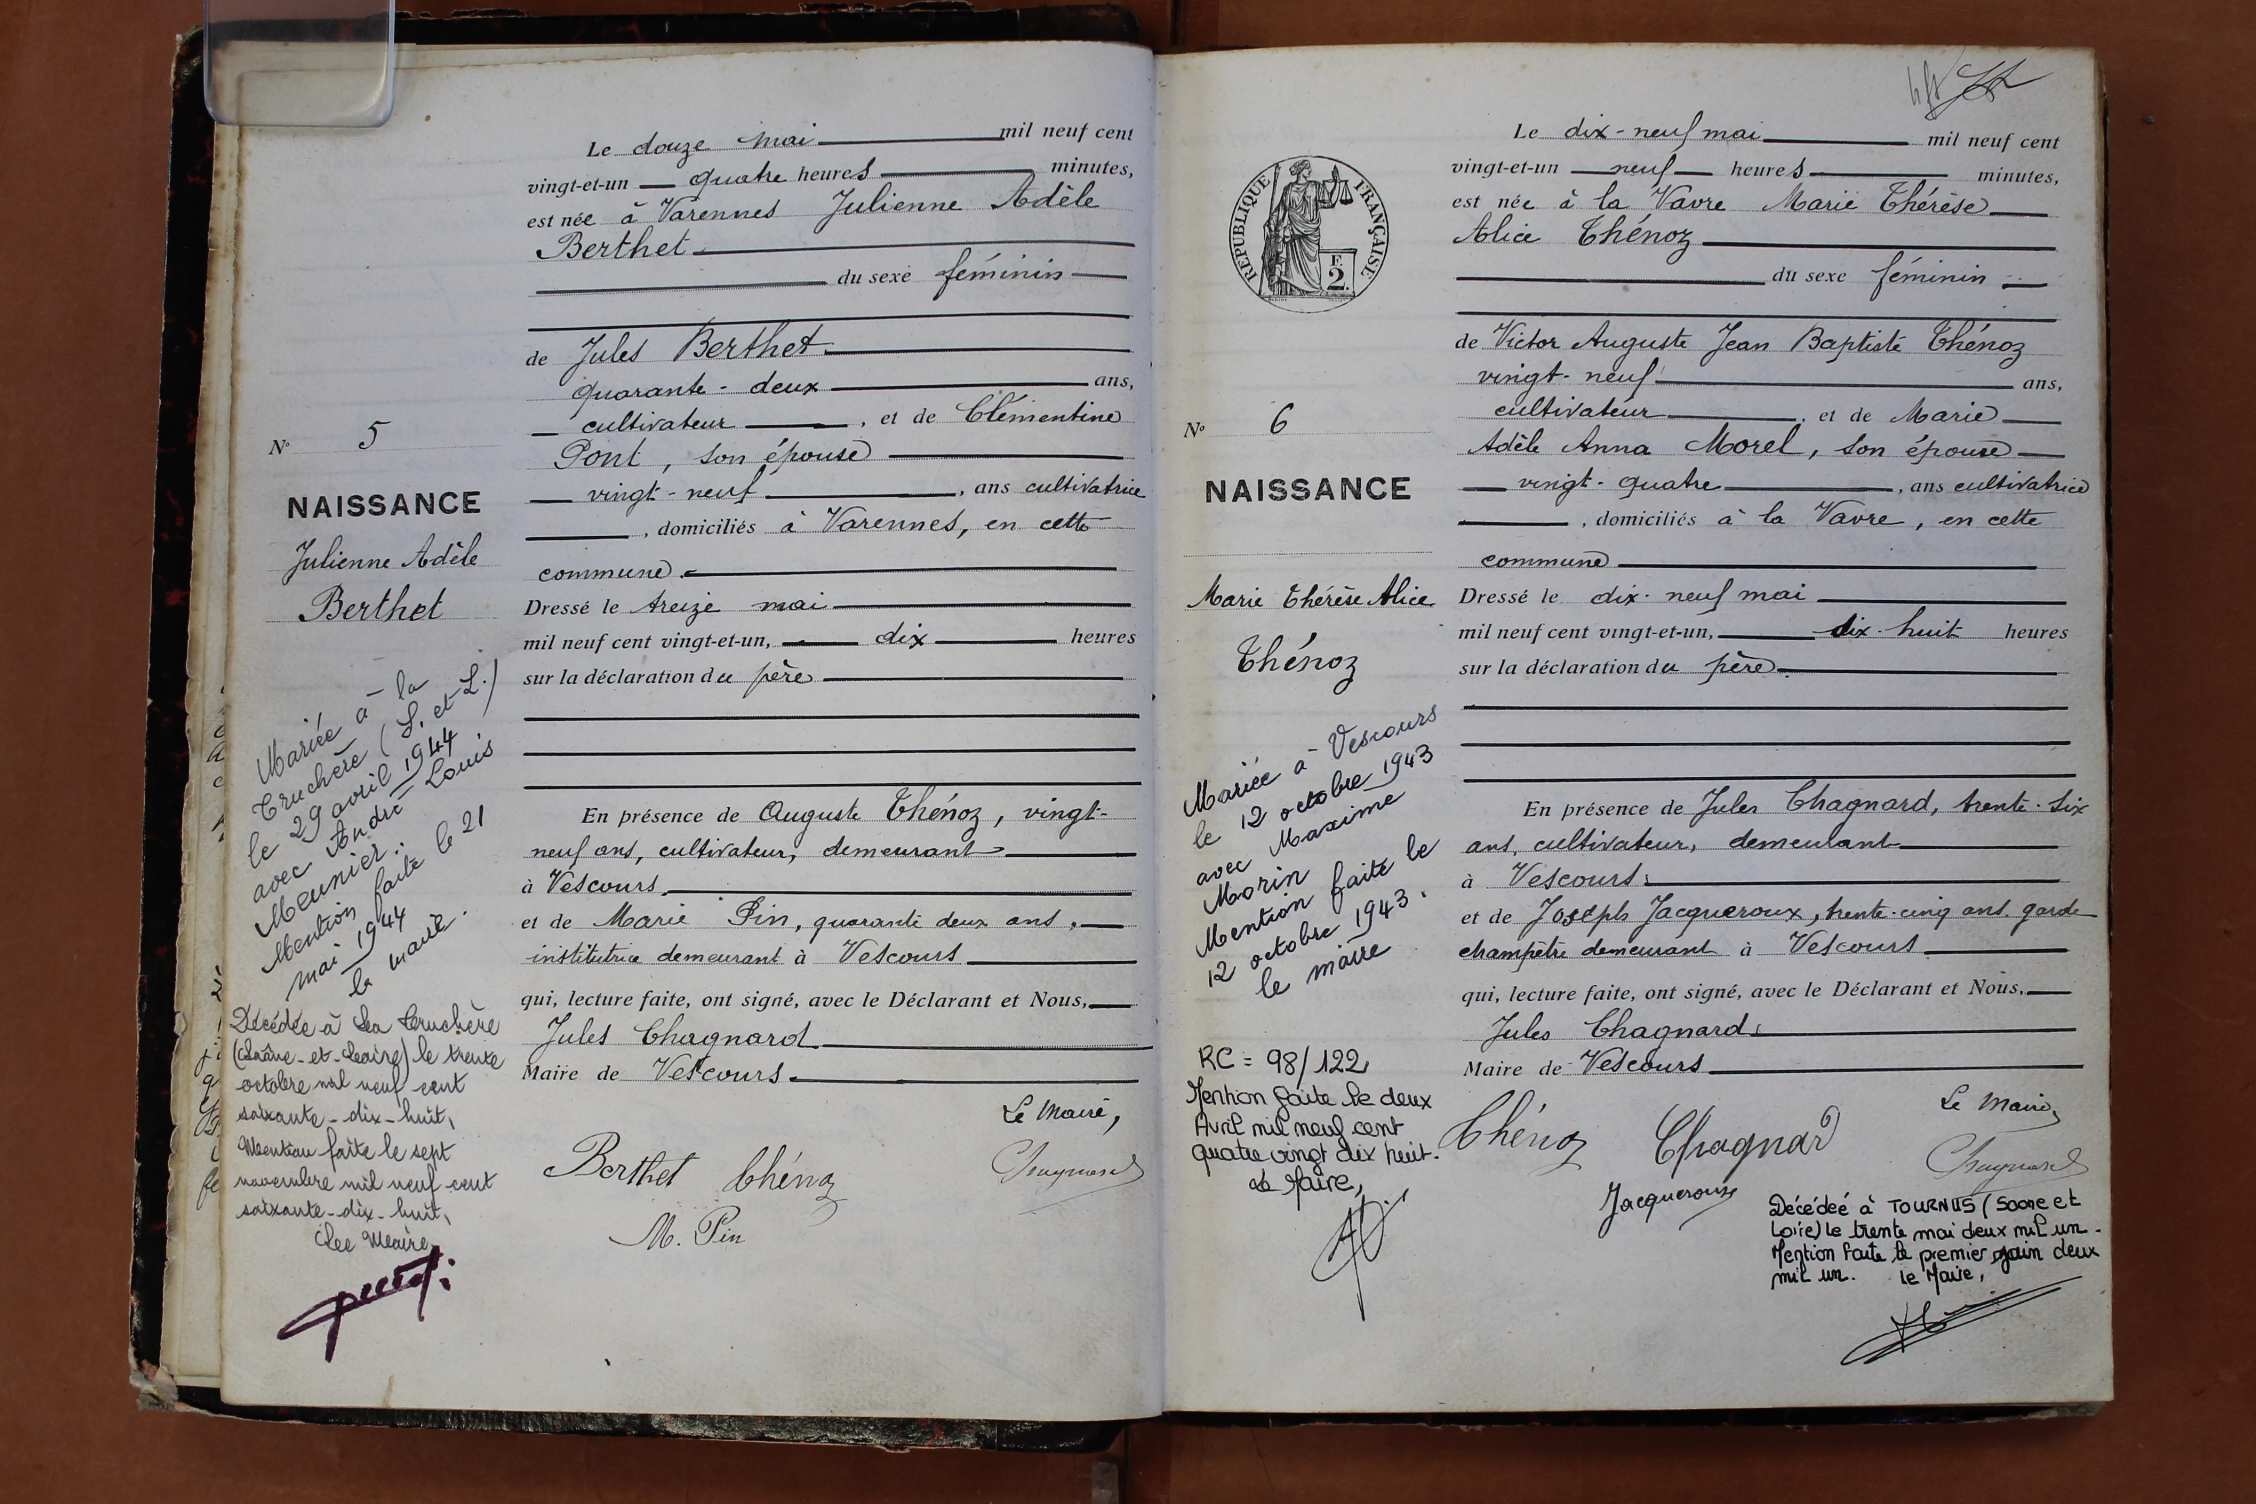 Le douze mai mil neuf cent
vingt-et-un quatre heures minutes,
est née à Varennes Julienne Adèle
Berthet
du sexe féminin
de Jules Berthet
quarante-deux ans,
cultivateur, et de Clémentine
Pont, son épouse
vingt-neuf, ans cultivatrice
, domiciliés à Varennes, en cette
commune.
Dressé le treize mai
mil neuf cent vingt-et-un, dix heures
sur la déclaration du père
En présence de Auguste Thénoz, vingt-
neuf ans, cultivateur, demeurant
à Vescours
et de Marie Pin, quarante deux ans,
institutrice demeurant à Vescours
qui, lecture faite, ont signé, avec le Déclarant et Nous,
Jules Chagnard
Maire de Vescours.
Le Maire,
Berthet Thénoz Chagnard
M. Pin
N° 5
NAISSANCE
Julienne Adèle
Berthet
Mariée à la
Truchère (S. et L.)
le 29 avril 1944
avec André Louis
Meunier.
Mention faite le 21
mai 1944
le maire.
Décédée à La Truchère
(Saône-et-Loire) le trente
octobre mil neuf cent
soixante-dix-huit,
Mention faite le sept
novembre mil neuf cent
soixante-dix-huit,
Le Maire
Le dix-neuf mai mil neuf cent
vingt-et-un neuf heures minutes,
est née à la Vavre Marie Thérèse
Alice Thénoz
du sexe féminin
de Victor Auguste Jean Baptiste Thénoz
vingt-neuf ans,
cultivateur, et de Marie
Adèle Anna Morel, son épouse
vingt-quatre, ans cultivatrice
, domiciliés à la Vavre, en cette
commune
Dressé le dix-neuf mai
mil neuf cent vingt-et-un, dix-huit heures
sur la déclaration du père.
En présence de Jules Chagnard, trente-six
ans, cultivateur, demeurant
à Vescours
et de Joseph Jacqueroux, trente-cinq ans, garde
champêtre demeurant à Vescours
qui, lecture faite, ont signé, avec le Déclarant et Nous,
Jules Chagnard
Maire de Vescours
Le Maire,
Thénoz Chagnard Chagnard
Jacqueroux
Décédée à TOURNUS (Saone et
Loire) le trente mai deux mil un.
Mention faite le premier juin deux
mil un. le Maire,
RÉPUBLIQUE FRANÇAISE
F.
2
N° 6
NAISSANCE
Marie Thérèse Alice
Thénoz
Mariée à Vescours
le 12 octobre 1943
avec Maxime
Morin
Mention faite le
12 octobre 1943.
le maire
RC = 98/122
Mention faite le deux
Avril mil neuf cent
quatre vingt dix huit.
Le Maire,